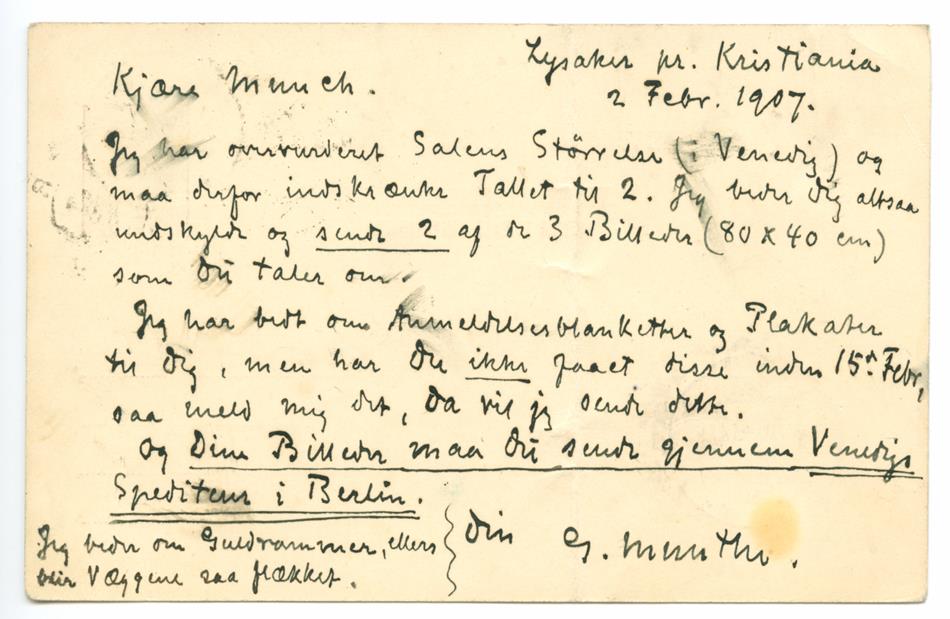 Lysaker pr. Kristiania
2 Febr. 1907.
Kjære Munch.
Jeg har overvurderet Salens Störrelse (i Venedig) og
maa derfor indskrænke Tallet til 2. Jeg beder Dig altsaa
undskylde og sende 2 af de 3 Billeder (80 x 40 cm)
som Du taler om.
Jeg har bedt om Anmeldelsesblanketter og Plakater
til Dig, men har Du ikke faaet disse inden 15de Febr,
saa meld mig det, Da vil jeg sende dette.
Og Dine Billeder maa Du sende gjennem Venedigs
Spediteur i Berlin.
Din G. Munthe.
Jeg beder om Guldrammer, ellers
blir Væggene saa flækket.